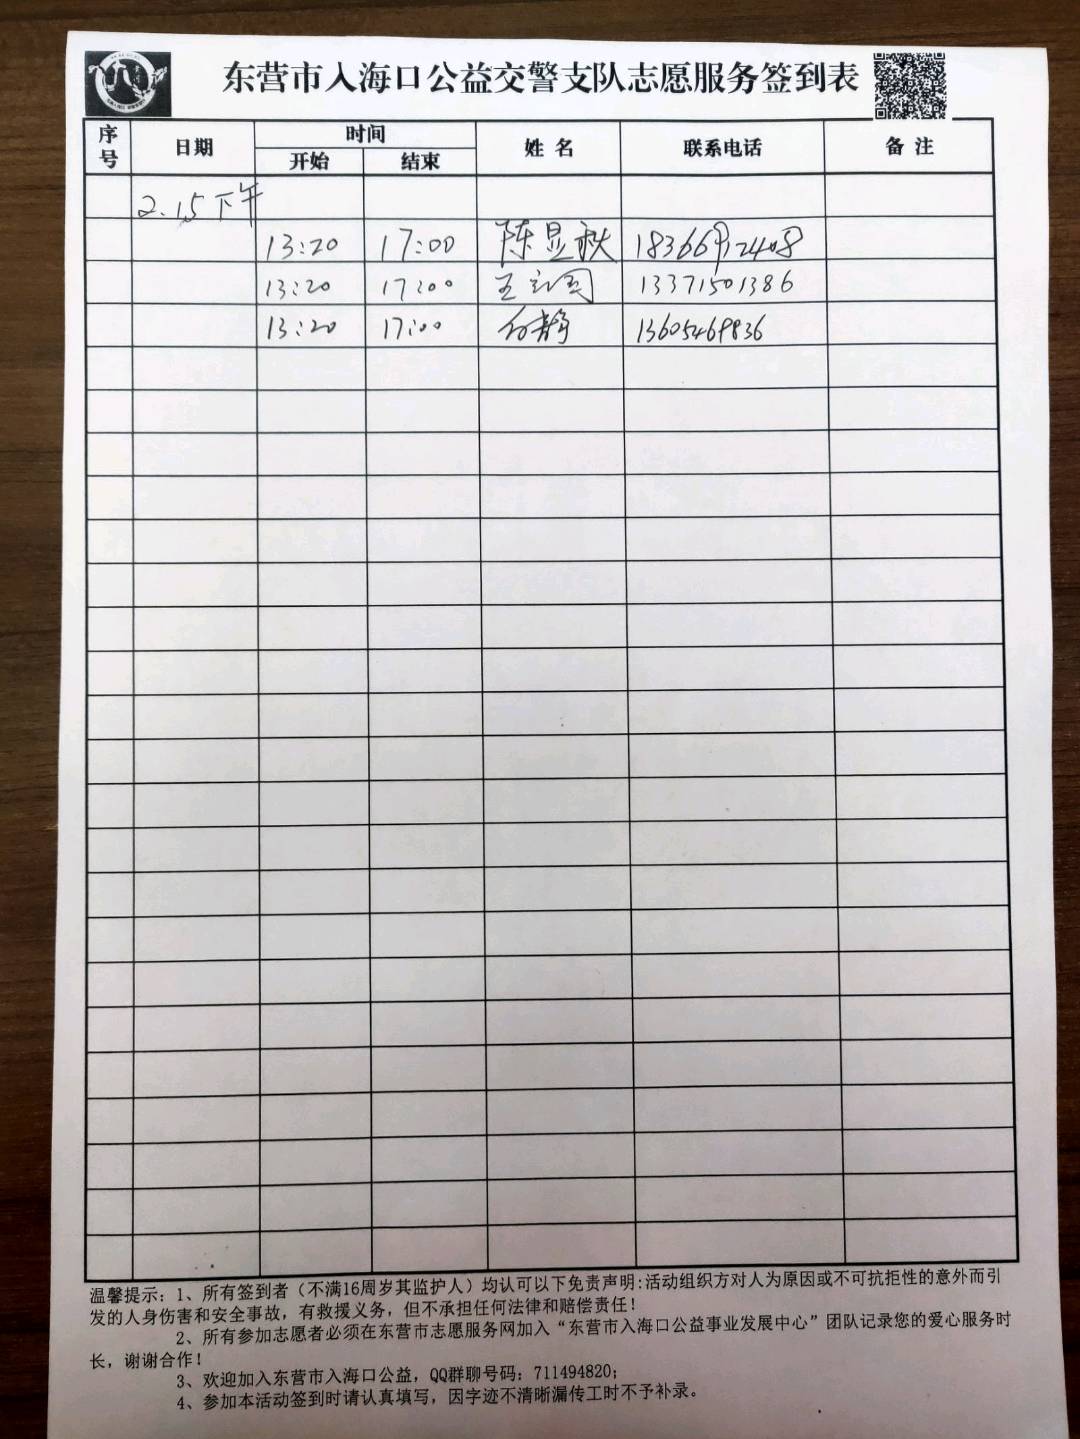 东营市入海口公益交警支队志愿服务签到表
序号 日期 时间 姓名 联系电话 备注
开始 结束
2.15下午
13:20 17:00 陈显秋 18366912408
13:20 17:00 王 13371501386
13:20 17:00 静 13605469836
温馨提示：1、所有签到者（不满16周岁其监护人）均认可以下免责声明:活动组织方对人为原因或不可抗拒性的意外而引
发的人身伤害和安全事故，有救援义务，但不承担任何法律和赔偿责任！
2、所有参加志愿者必须在东营市志愿服务网加入“东营市入海口公益事业发展中心”团队记录您的爱心服务时
长，谢谢合作！
3、欢迎加入东营市入海口公益，QQ群聊号码：711494820；
4、参加本活动签到时请认真填写，因字迹不清晰漏传工时不予补录。